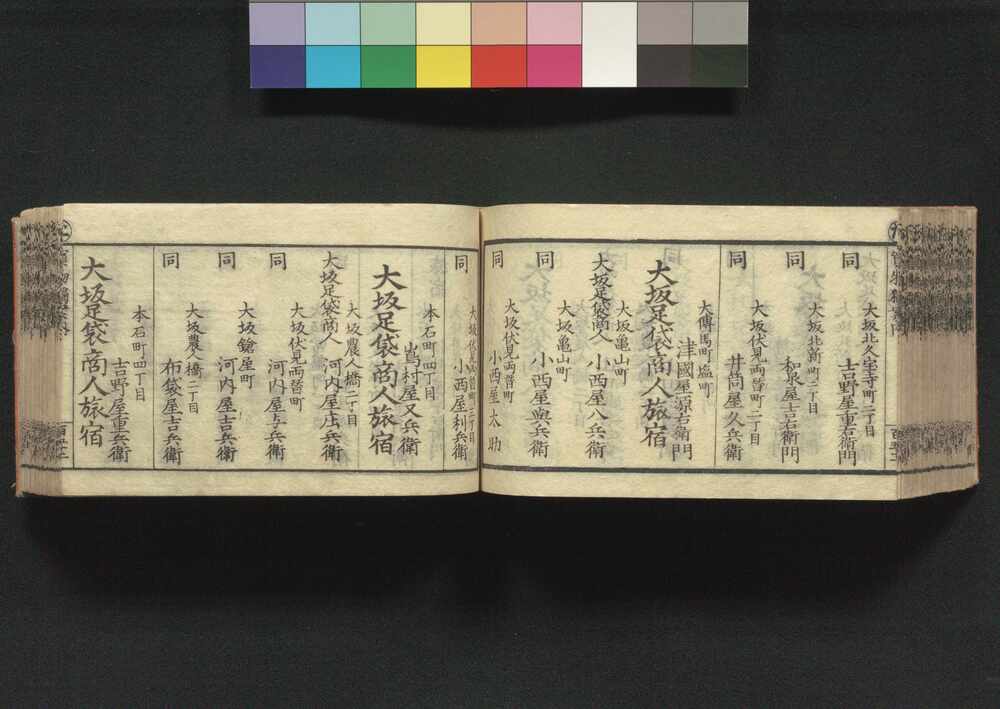 大坂北久宝寺町二丁目
同 吉野屋重右衛門
大坂北新町二丁目
同 和泉屋吉右衛門
大坂伏見両替町二丁目
同 井筒屋久兵衛
大傳馬町塩町
津國屋源右衛門
大坂足袋商人旅宿
大坂亀山町
大坂足袋商人 小西屋八兵衛
大坂亀山町
同 小西屋與兵衛
大坂伏見両替町
同 小西屋太助
大坂伏見両替町二丁目
同 小西屋利兵衛
本石町四丁目
嶌村屋又兵衛
大坂足袋商人旅宿
大坂農人橋二丁目
大坂足袋商人 河内屋庄兵衛
大坂伏見両替町
同 河内屋与兵衛
大坂鎗屋町
同 河内屋吉兵衛
大坂農人橋二丁目
同 布袋屋吉兵衛
本石町四丁目
吉野屋重兵衛
大坂足袋商人旅宿